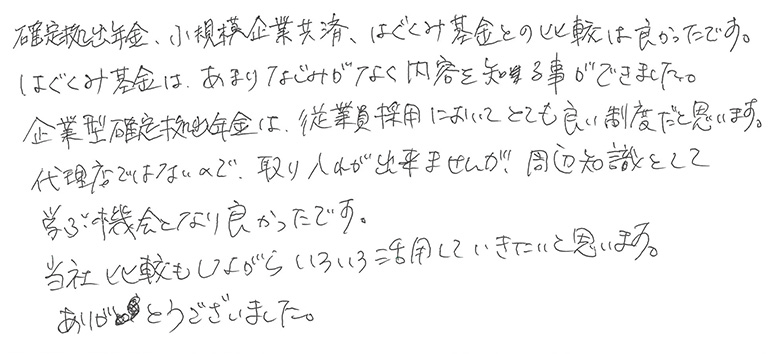 確定拠出年金、小規模企業共済、はぐくみ基金との比較は良かったです。
はぐくみ基金は、あまりなじみがなく内容を知る事ができました。
企業型確定拠出年金は、従業員採用においてとても良い制度だと思います。
代理店ではないので、取り入れが出来ませんが、周辺知識として
学ぶ機会となり良かったです。
当社比較もしながらいろいろ活用していきたいと思います。
ありがとうございました。